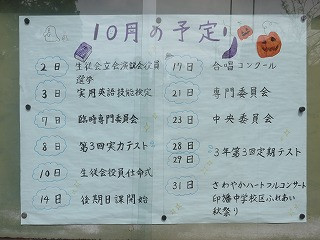 10月の予定
2日 生徒会立会演説会役員
選挙
3日 実用英語技能検定
7日 臨時専門委員会
8日 第3回実力テスト
10日 生徒会役員任命式
14日 後期日課開始
17日 合唱コンクール
21日 専門委員会
23日 中央委員会
28日
29日 3年第3回定期テスト
31日 さわやかハートフルコンサート
印旛中学校区ふれあい
秋祭り